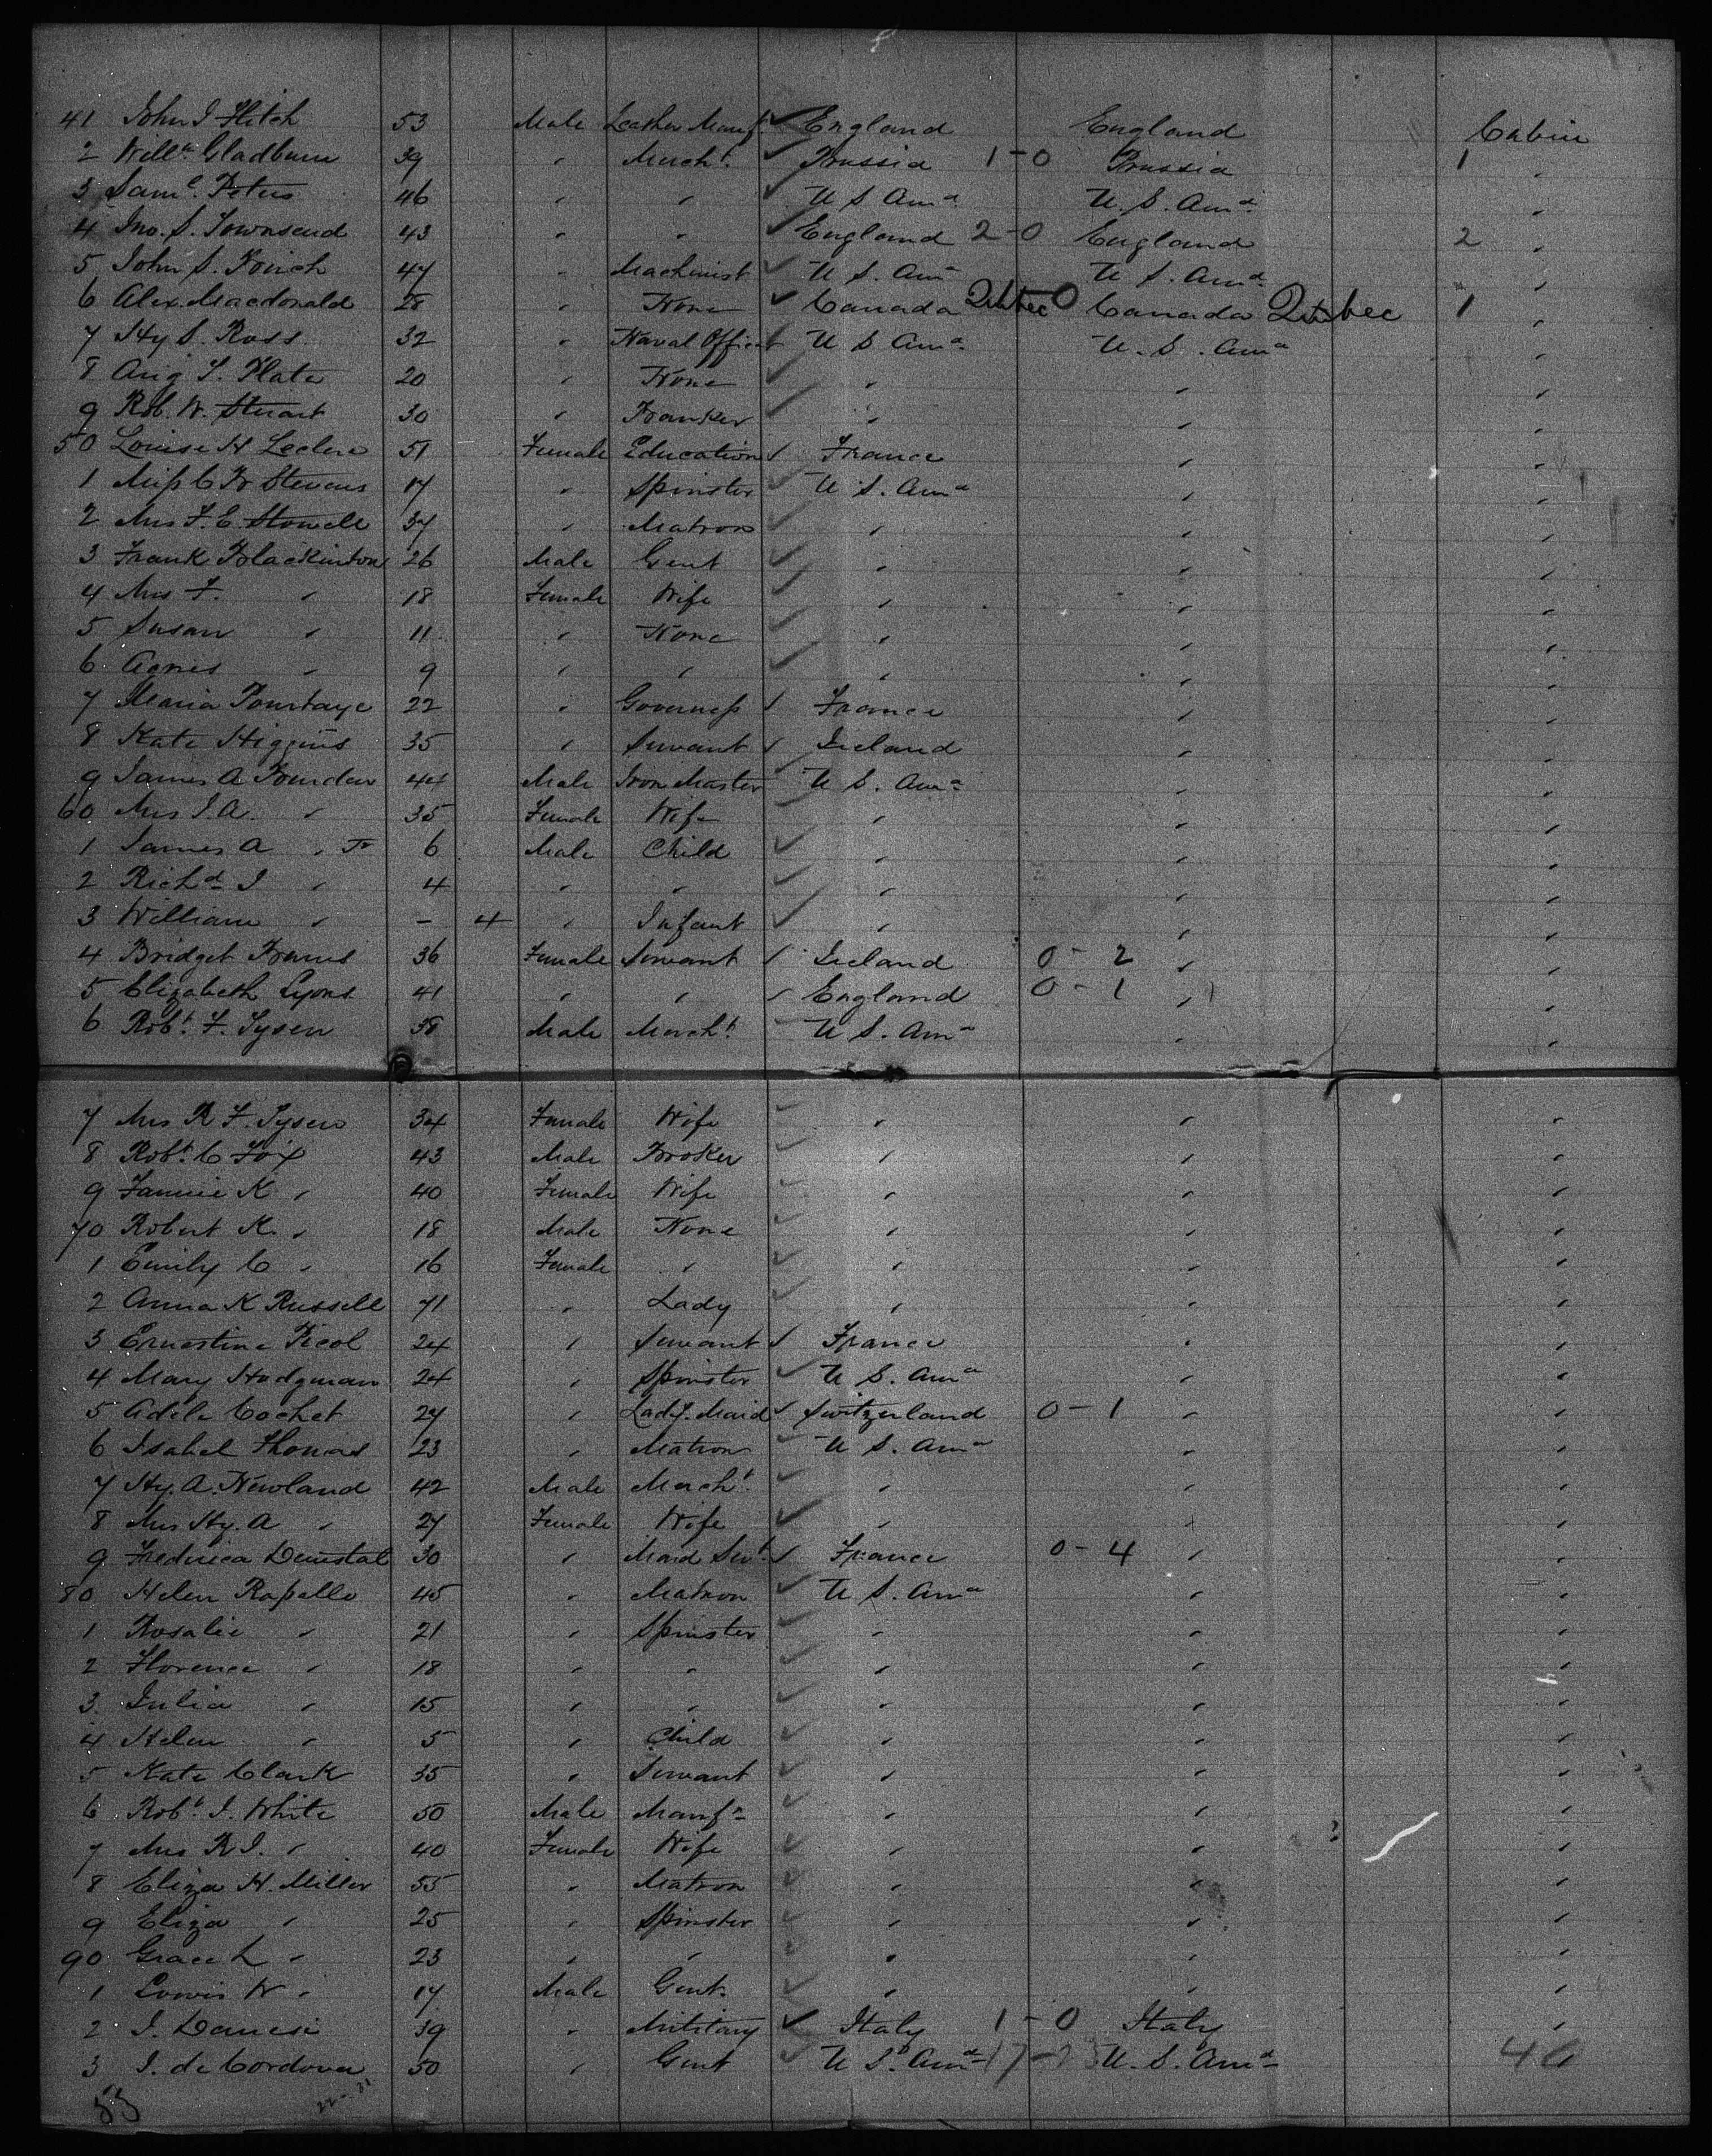 41 John J Flitch 53 Male Leather Manf. England England Cabin
2 Willm Gladburn 39 " Mercht. Prussia 1-0 Prussia 1 "
3 Saml. Peters 46 " " U S Ama. U. S. Ama. "
4 Jno. S. Townsend 43 " " England 2-0 England 2 "
5 John S. 47 " Machinist U S. Ama U S. Ama. "
6 Alex. Macdonald 28 " None Canada Quebec 0 Canada Quebec 1 "
7 Hy S. Ross 32 " Naval Officer U S Ama. U. S. Ama "
8 Aug S. Plate 20 " None " " "
9 Rob. W. Stuart 30 " Banker " " "
50 Louise H Leclere 51 Female Education France " "
1 Miss C B Stevens 17 " Spinster U S. Ama " "
2 Mrs F. E. Stowell 37 " Matron " " "
3 Frank Blackinton 26 Male Gent " " "
4 Mrs F. " 18 Female Wife " " "
5 Susan " 11 " None " " "
6 Agnes " 9 " " " " "
7 Maria 22 " Governess France " "
8 Kate Higgins 35 " Servant Ireland " "
9 James A Burden 44 Male Iron Master U S. Ama " "
60 Mrs J. A. " 35 Female Wife " " "
1 James A " Jr 6 Male Child " " "
2 Richd J " 4 " " " " "
3 William " - 4 " Infant " " "
4 Bridget 36 Female Servant Ireland 0-2 " "
5 Elizabeth Lyons 41 " " England 0-1 " "
6 Robt. F. Tysen 38 Male Mercht. U S. Ama " "
7 Mrs R F. Tysen 34 Female Wife " " "
8 Robt. C Fox 43 Male Broker " " "
9 Fannie K " 40 Female Wife " " "
70 Robert K. " 18 Male None " " "
1 Emily C " 16 Female " " " "
2 Anna K Russell 71 " Lady " " "
3 Ernestine Picol 24 " Servant France " "
4 Mary Hodgman 24 " Spinster U S. Ama " "
5 Adele Cochet 27 " Lady's Maid Switzerland 0-1 " "
6 Isabel Thomas 23 " Matron U S. Ama " "
7 Hy. A. Newland 42 Male Mercht. " " "
8 Mrs Hy. A " 27 Female Wife " " "
9 Frederica 30 " Maid Servt. France 0-4 " "
80 Helen Rapallo 45 " Matron U S. Ama " "
1 Rosalie " 21 " Spinster " " "
2 Florence " 18 " " " " "
3 Julia " 15 " " " " "
4 Helen " 5 " Child " " "
5 Kate Clark 35 " Servant " " "
6 Robt. J. White 50 Male Manfr " " "
7 Mrs R J. " 40 Female Wife " " "
8 Eliza H. Miller 55 " Matron " " "
9 Eliza " 25 " Spinster " " "
90 Grace L " 23 " " " " "
1 Lewis W " 17 Male Gent. " " "
2 J. Danesi 39 " Military Italy 1-0 Italy "
3 J. de Cordova 50 " Gent U S. Ama 17-23 U. S. Ama 46
53 22-31